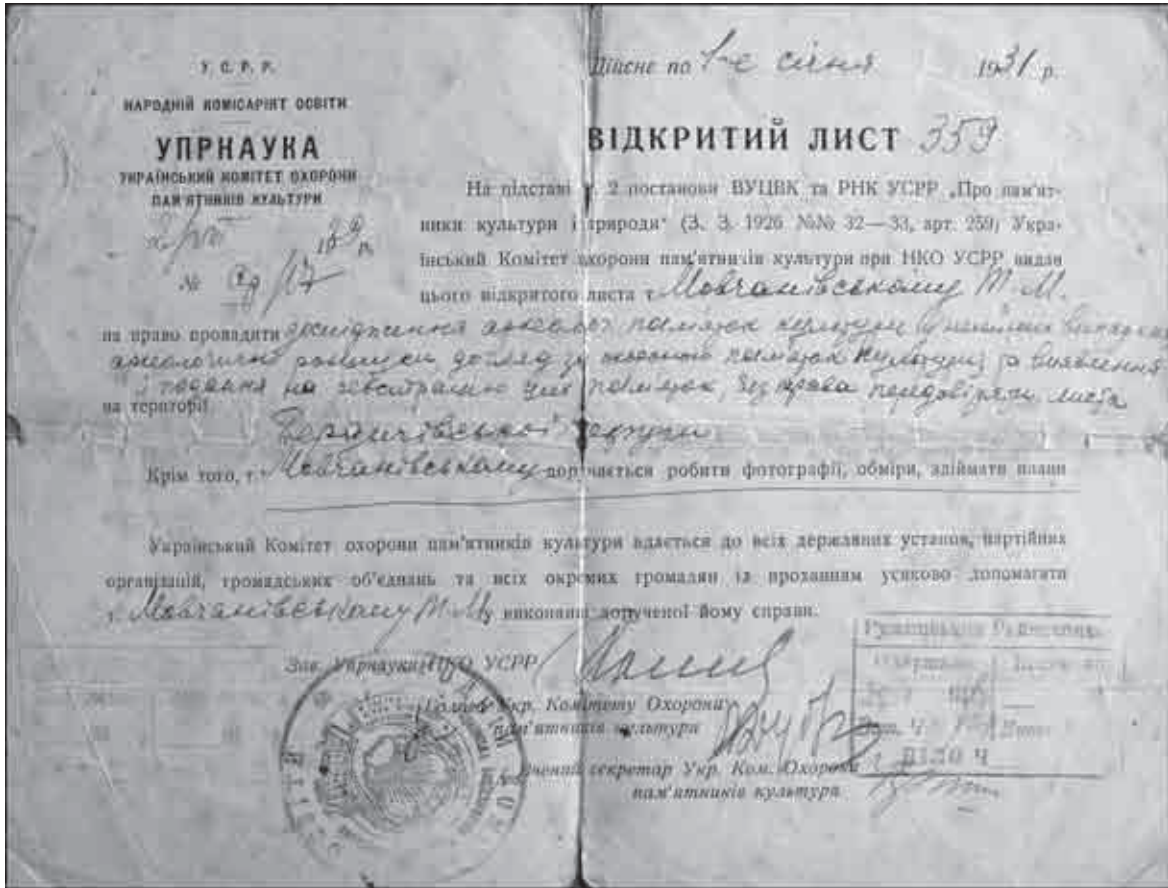 У. С. Р. Р.
НАРОДНІЙ КОМІСАРІЯТ ОСВІТИ
УПРНАУКА
УКРАЇНСЬКИЙ КОМІТЕТ ОХОРОНИ
ПАМ'ЯТНИКІВ КУЛЬТУРИ
№
Дійсне по 1-е січня 1931 р.
ВІДКРИТИЙ ЛИСТ 359
На підставі 2 постанови ВУЦВК та РНК УСРР „Про пам'ят-
ники культури і природи" (З. З. 1926 №№ 32—33, арт. 259) Укра-
їнський Комітет охорони пам'ятників культури при НКО УСРР видав
цього відкритого листа т. Мовчанівському Т. М.
на право провадити дослідження пам'яток культури
археологічні догляд за охороною пам'яток культури, за виявлення
і подання на реєстрацію цих пам'яток, без права передовіряти листа
на території
Бердичівської округи
Крім того, т. Мовчанівському доручається робити фотографії, обміри, здіймати плани
Український Комітет охорони пам'ятників культури вдається до всіх державних установ, партійних
організацій, громадських об'єднань та всіх окремих громадян із проханням усяково допомагати
т. Мовчанівському Т. М. у виконанні дорученої йому справи.
Зав. Упрнауки НКО УСРР
Голова Укр. Комітету Охорони
пам'ятників культури
секретар Укр. Ком. Охорони
пам'ятників культури
ДІЛО Ч